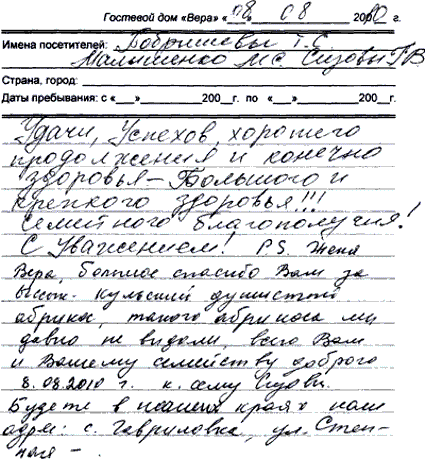 Гостевой дом «Вера» «08» 08 2010 г.
Имена посетителей: Бобришевы Т.С.
Малышенко М.С. Сизовы Г.В
Страна, город:
Даты пребывания: с «__»________200__г. по «__»________200__г.
Удачи, Успехов хорошего
продолжения и конечно
здоровья – Большого и
крепкого здоровья!!!
Семейного благополучия!
С Уважением! P.S. Женя
Вера, большое спасибо Вам за
душистый
абрикос, такого абрикоса мы
давно не видали, всего Вам
и Вашему семейству доброго
8.08.2010 г. к. сему Сизовы.
Будете в наших краях наш
адрес: с. Гавриловка, ул. Степ-
ная –.